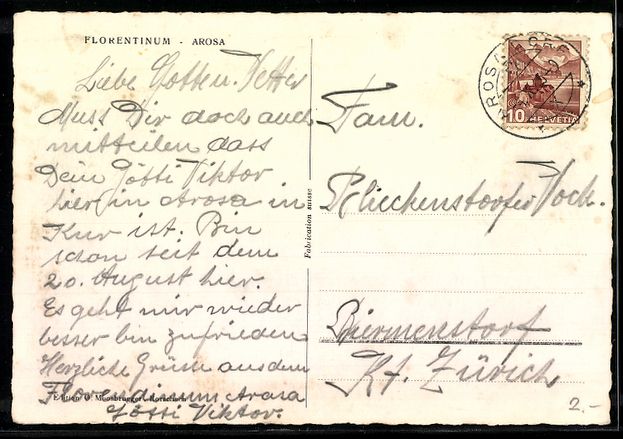 FLORENTINUM - AROSA
Liebe Gotten. Vetter
Muss Dir doch auch
mitteilen dass
Dein Götti Viktor
hier in Arosa in
Kur ist. Bin
schon seit dem
20. August hier.
Es geht mir wieder
besser bin zufrieden
Herzliche Grüsse aus dem
Florentinum Arosa
Götti Viktor.
Edition O. Moosbrugger, Rorschach
Fabrication suisse
AROSA
10 HELVETIA
Fam.
Plieckenstorfer
Birmenstorf
Kt. Zürich
2.-